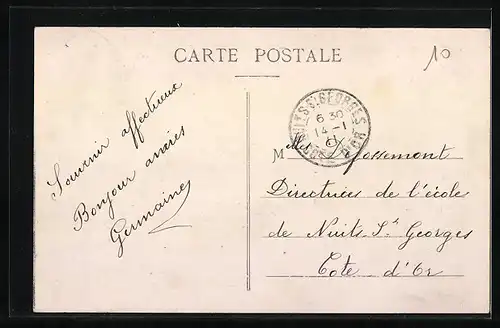 CARTE POSTALE
10
Souvenir affectueux
Bonjour amies
Germaine
NUITS-ST-GEORGES
6 30
14 - 1
11
COTE D'OR
Melles Jossemont
Directrices de l'école
de Nuits St Georges
Cote d'Or